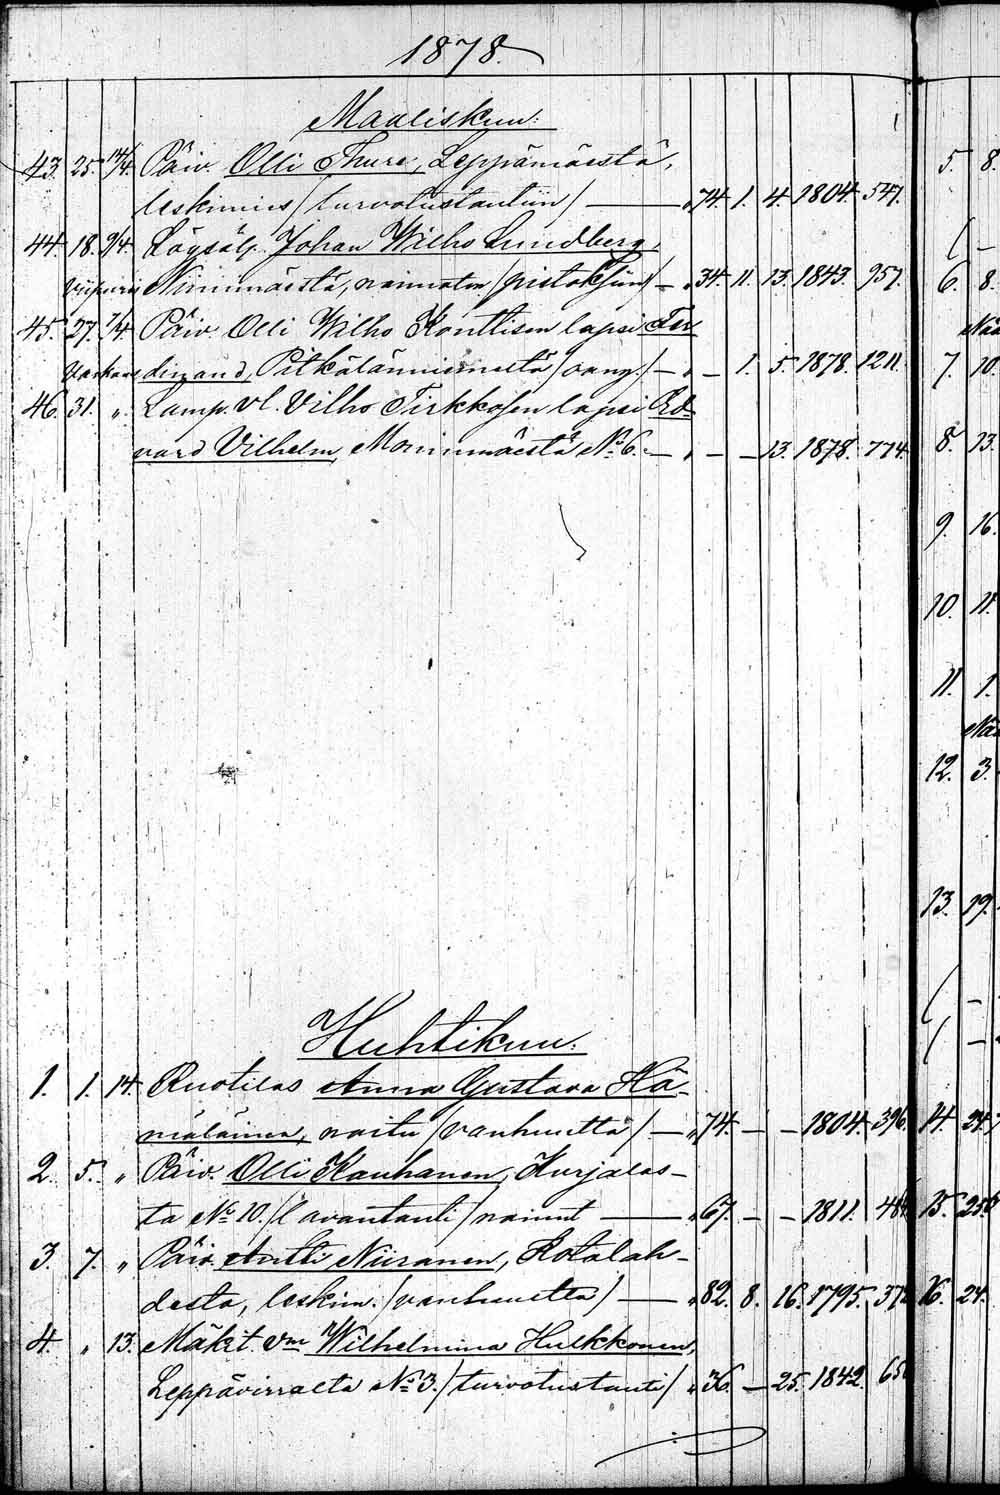 1878.
Maaliskuu:
43. 25. 14/4. Päiv. Olli Thure, Leppämäestä, 5. 8.
leskimies /turvotustautiin/ — „ 74. 1. 4. 1804. 547.
44. 18. 9/4. Johan Wilho Lundberg,
Viipurii Nimimäestä, naimaton /pistoksiin/ — „ 34. 11. 13. 1843. 957. 6. 8.
45. 27. 7/4. Päiv. Olli Wilho Konttisen lapsi Fer
Varkaus dinand, Pitkälänniemeltä — „ — 1. 5. 1878. 1211. 7. 10.
46. 31. „ Lamp. vl. Vilho Tirkkosen lapsi Ed-
vard Vilhelm, Moninmäestä No 6. — „ — — 13. 1878. 774. 8. 13.
9. 16.
10. 11.
11. 1.
12. 3.
13. 19.
Huhtikuu:
1. 1. 14. Ruotilas Anna Gustava Hä-
mäläinen, naitu /vanhuutta/ — „ 74. — — 1804. 396. 14. 24.
2. 5. „ Päiv. Olli Kauhanen, Kurjalas-
ta No 10. /lavantauti/ nainut — „ 67. — — 1811. 15. 25.
3. 7. „ Päiv. Antti Niiranen, Kotalah-
desta, leskim. /vanhuutta/ — „ 82. 8. 16. 1795. 16. 24.
4. „ 13. Mäkit. vm Wilhelmina Hulkkonen,
Leppävirralta No 3. /turvotustauti/ „ 36. — 25. 1842.